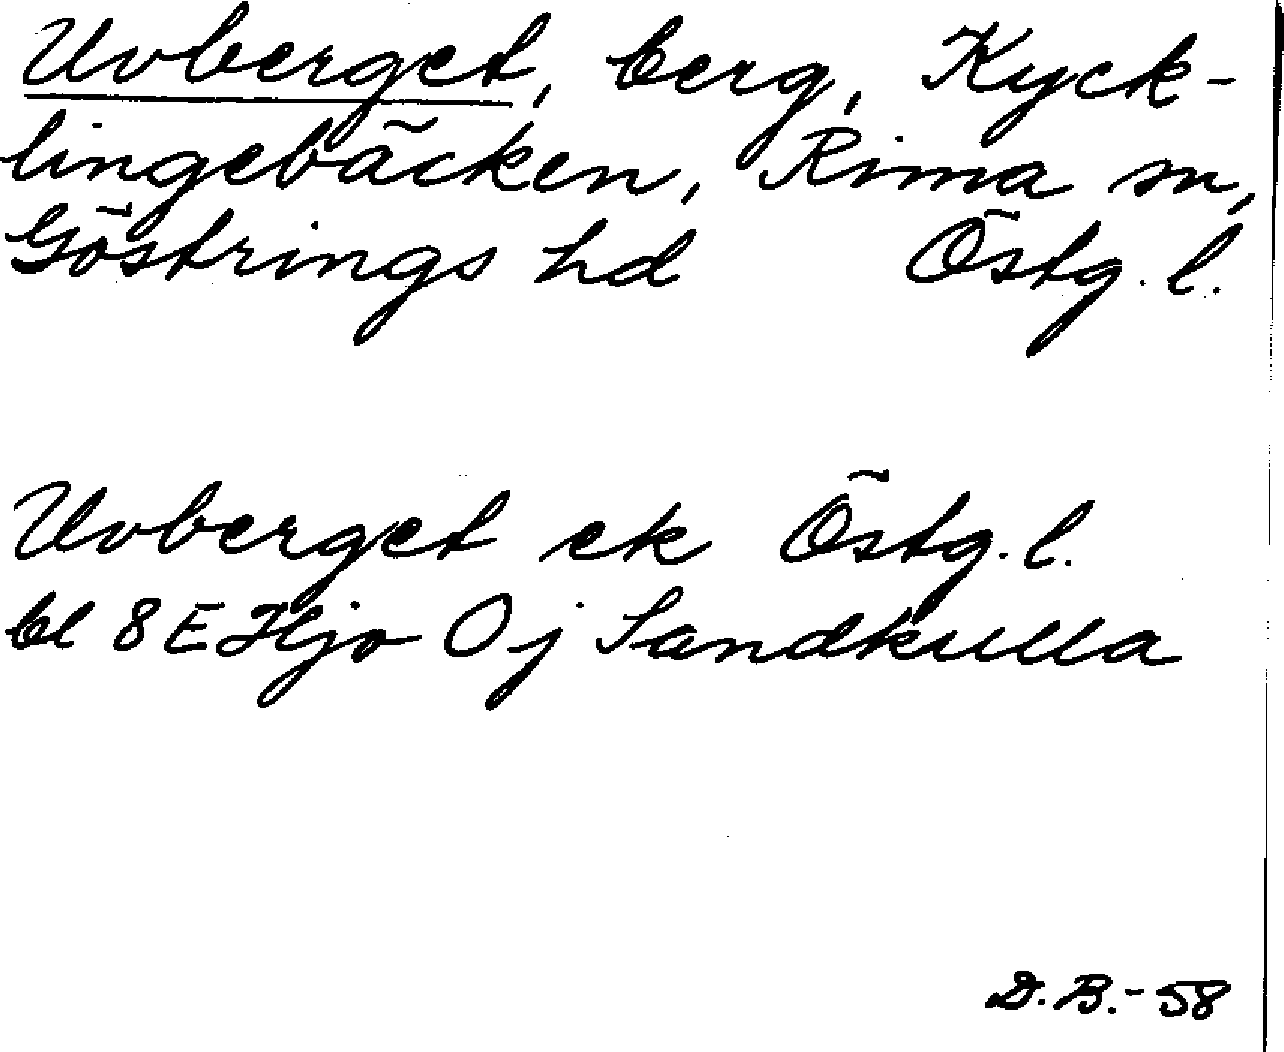 Uvberget, berg, Kyck-
lingebäcken, Rinna sn,
Göstrings hd Östg. l.
Uvberget ek Östg. l.
bl 8 E Hjo 0j Sandkulla
D. B. - 58